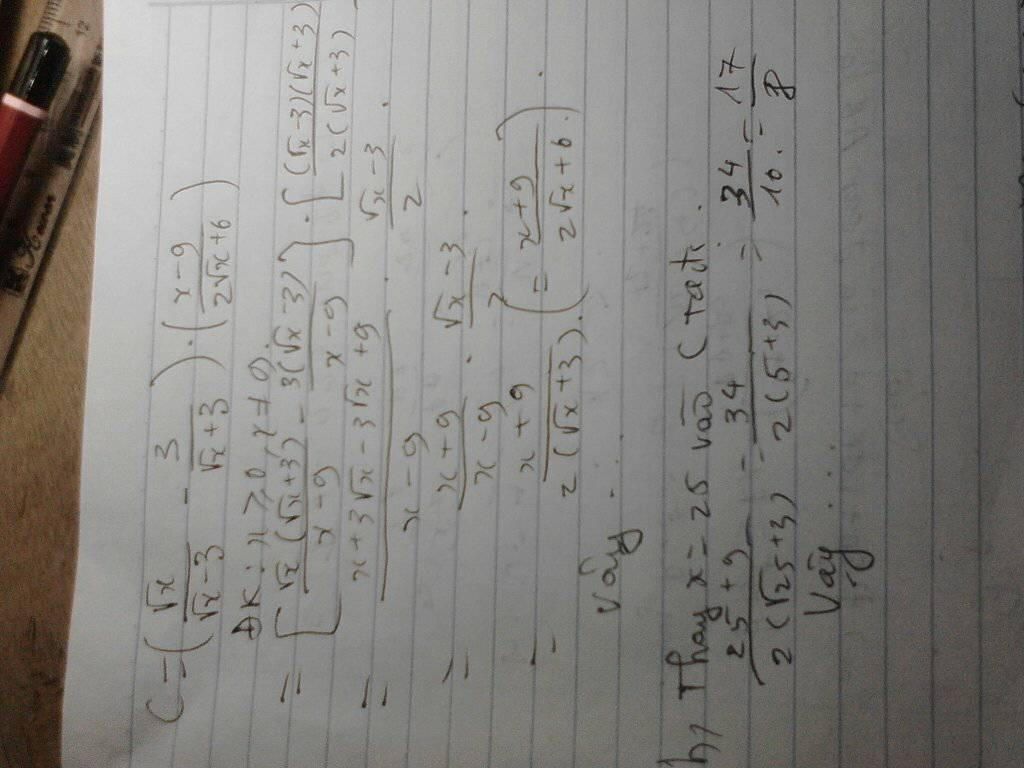 C = ( √x / (√x - 3) - 3 / (√x + 3) ) . ( (x - 9) / (2√x + 6) )
ĐK: x ≥ 0, x ≠ 9.
= [ √x (√x + 3) / (x - 9) - 3(√x - 3) / (x - 9) ] . [ (√x - 3)(√x + 3) / 2(√x + 3)
= (x + 3√x - 3√x + 9) / (x - 9) . (√x - 3) / 2 .
= (x + 9) / (x - 9) . (√x - 3) / 2 .
= (x + 9) / 2(√x + 3) . ( = (x + 9) / (2√x + 6) ) .
Vậy . . .
b, Thay x = 25 vào C tađc .
(25 + 9) / 2(√25 + 3) = 34 / 2(5 + 3) = 34 / 10 = 17 / 8
Vậy . . .